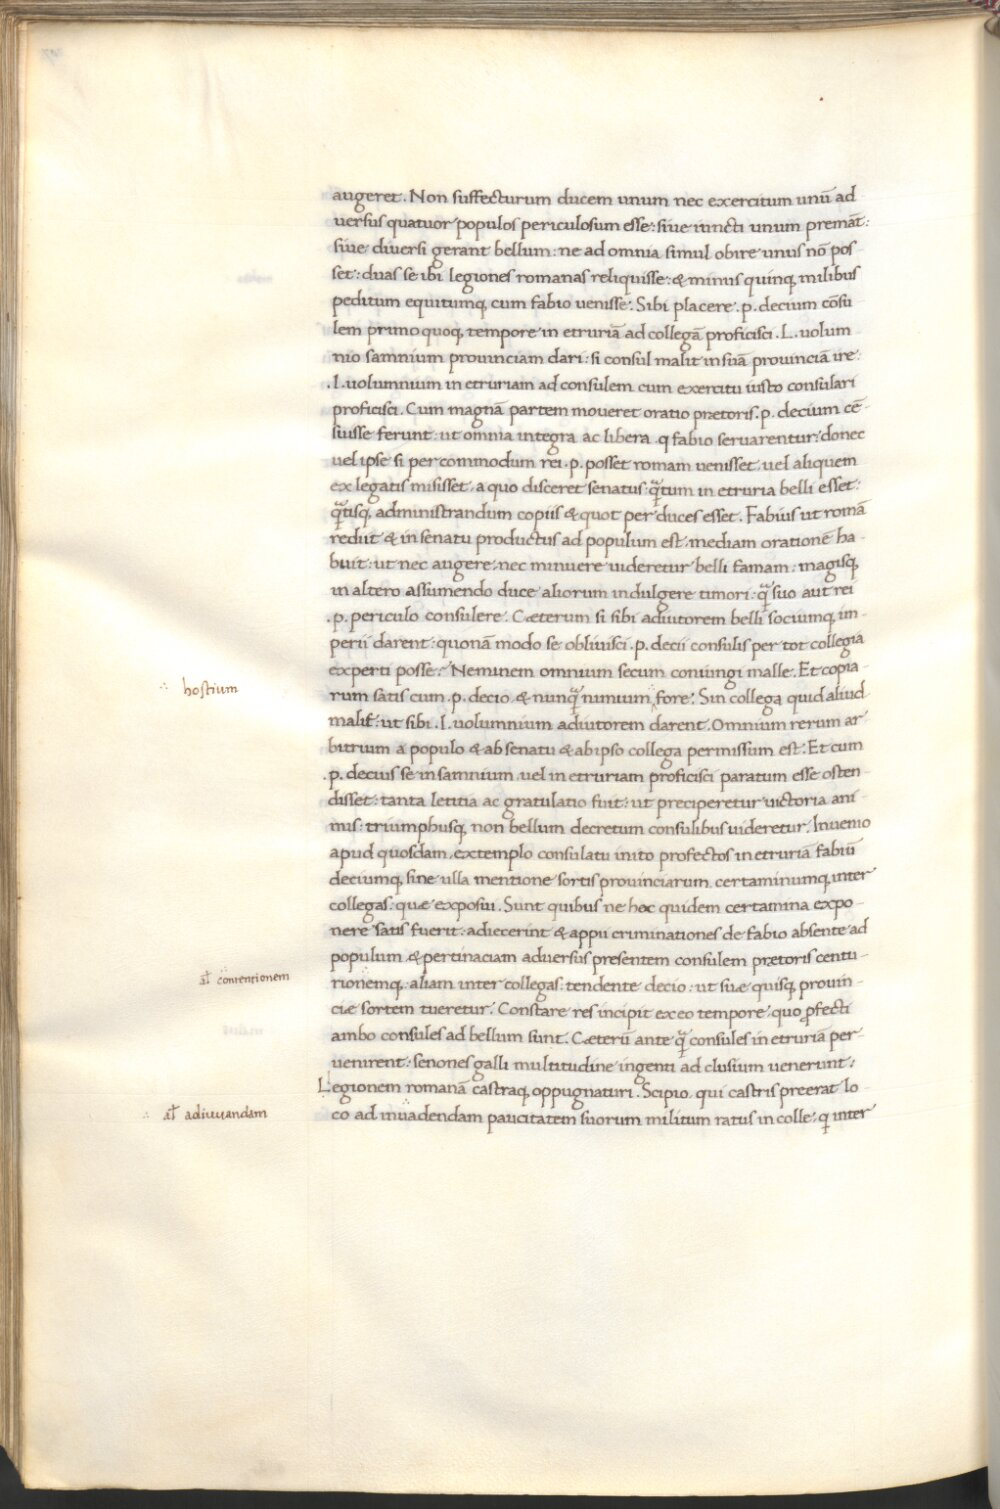 augeret. Non suffecturum ducem unum nec exercitum unū ad
versus quatuor populos periculosum esse: siue iuncti unum premāt:
siue diversi gerant bellum: ne ad omnia simul obire unus nō pos
set: duas se ibi legiones romanas reliquisse: & minus quinq, milibus
peditum equitumq, cum fabio venisse: Sibi placere. p. decium cōsu
lem primo quoq, tempore in etruriā ad collegā proficisci. L. uolum
nio samnium prouinciam dari: si consul malit in suā prouinciā ire:
.L. uolumnium in etruriam ad consulem cum exercitu iusto consulari
proficisci. Cum magnā partem moueret oratio prætoris. p. decium cē-
suisse ferunt: ut omnia integra ac libera q fabio seruarentur: donec
uel ipse si per commodum rei. p. posset romam uenisset. uel aliquem
ex legatis misisset. a quo disceret senatus: q̄tum in etruria belli esset:
q̄tisq, administrandum copiis & quot per duces esset. Fabius ut romā
rediit & in senatu productus ad populum est. mediam orationē ha-
buit: ut nec augere. nec minuere uideretur belli famam: magisq,
in altero assumendo duce aliorum indulgere timori: q̄ suo aut rei
.p. periculo consulere. Cæterum si sibi adiutorem belli sociumq, im-
perii darent: quonā modo se obliuisci. p. decii consulis per tot collegia
experti posse: Neminem omnium secum coniungi malle. Et copia-
rum satis cum. p. decio. & nunq̄ nimium fore: Sin collega quid aliud
malit: ut sibi. L. uolumnium adiutorem darent. Omnium rerum ar-
bitrium a populo & ab senatu & ab ipso collega permissum est: Et cum
.p. decius se in samnium uel in etruriam proficisci paratum esse osten-
disset: tanta letitia ac gratulatio fuit: ut preciperetur uictoria ani-
mis: triumphusq, non bellum decretum consulibus uideretur. Inuenio
apud quosdam. extemplo consulatu inito profectos in etruriā fabiū
deciumq, sine ulla mentione sortis prouinciarum. certaminumq, inter
collegas: quæ exposui. Sunt quibus ne hoc quidem certamina expo-
nere satis fuerit: adiecerint & appii criminationes de fabio absente ad
populum & pertinaciam aduersus presentem consulem prætoris centu-
rionemq,. aliam inter collegas: tendente decio: ut suæ quisq, prouin-
ciæ sortem tueretur. Constare res incipit ex eo tempore. quo p̄fecti
ambo consules ad bellum sunt. Cæterū ante q̄ consules in etruriā per-
uenirent: senones galli multitudine ingenti ad clusium uenerunt:
Legionem romanā castraq, oppugnaturi. Scipio. qui castris preerat lo-
co ad inuadendam paucitatem suorum militum ratus in colle: q inter
∴ hostium
al̄ ∴ contentionem
∴ al̄ adiuuandam